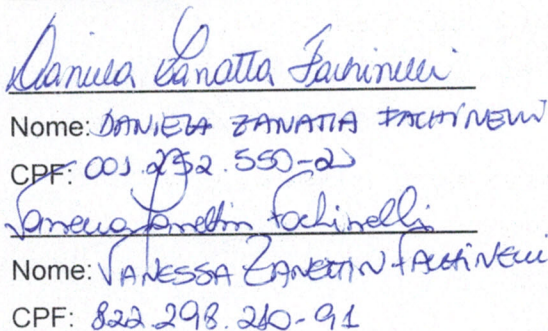 Daniela Zanatta Fachinelli
Nome: DANIELA ZANATTA FACHINELLI
CPF: 001.252.550-21
Vanessa Zanettin Fachinelli
Nome: VANESSA ZANETTIN FACHINELLI
CPF: 822.298.210-91